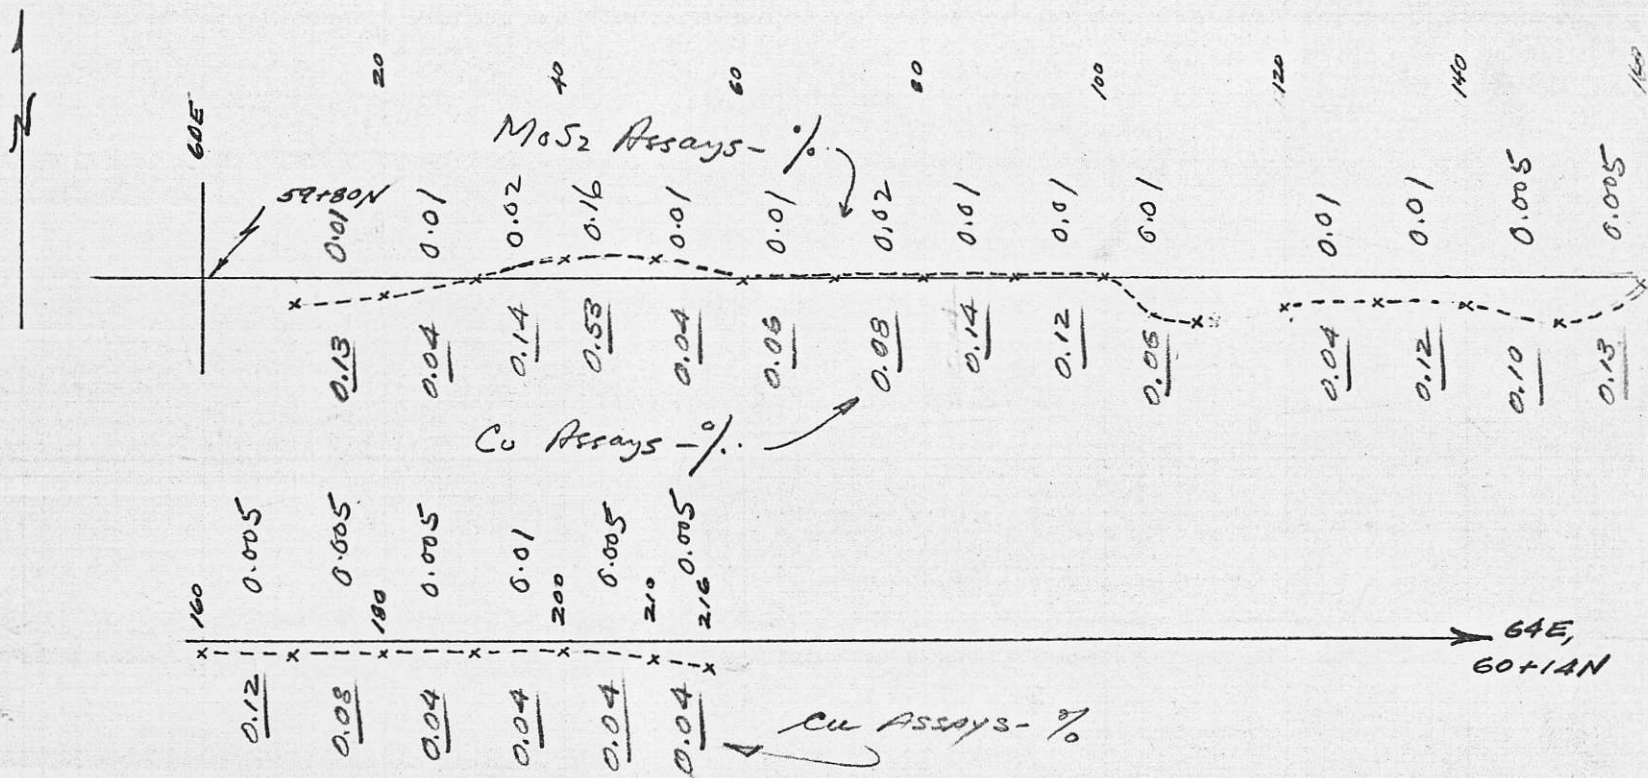 N
20 40 60 80 100 120 140 160
60E
59+80N
MoS2 Assays - %
0.01 0.01 0.02 0.16 0.01 0.01 0.02 0.01 0.01 0.01 0.01 0.01 0.005 0.005
0.13 0.04 0.14 0.53 0.04 0.06 0.08 0.14 0.12 0.06 0.04 0.12 0.10 0.13
Cu Assays - %
0.005 0.005 0.005 0.01 0.005 0.005
160 180 200 210 216
64E,
60+14N
0.12 0.08 0.04 0.04 0.04 0.04
Cu Assays - %